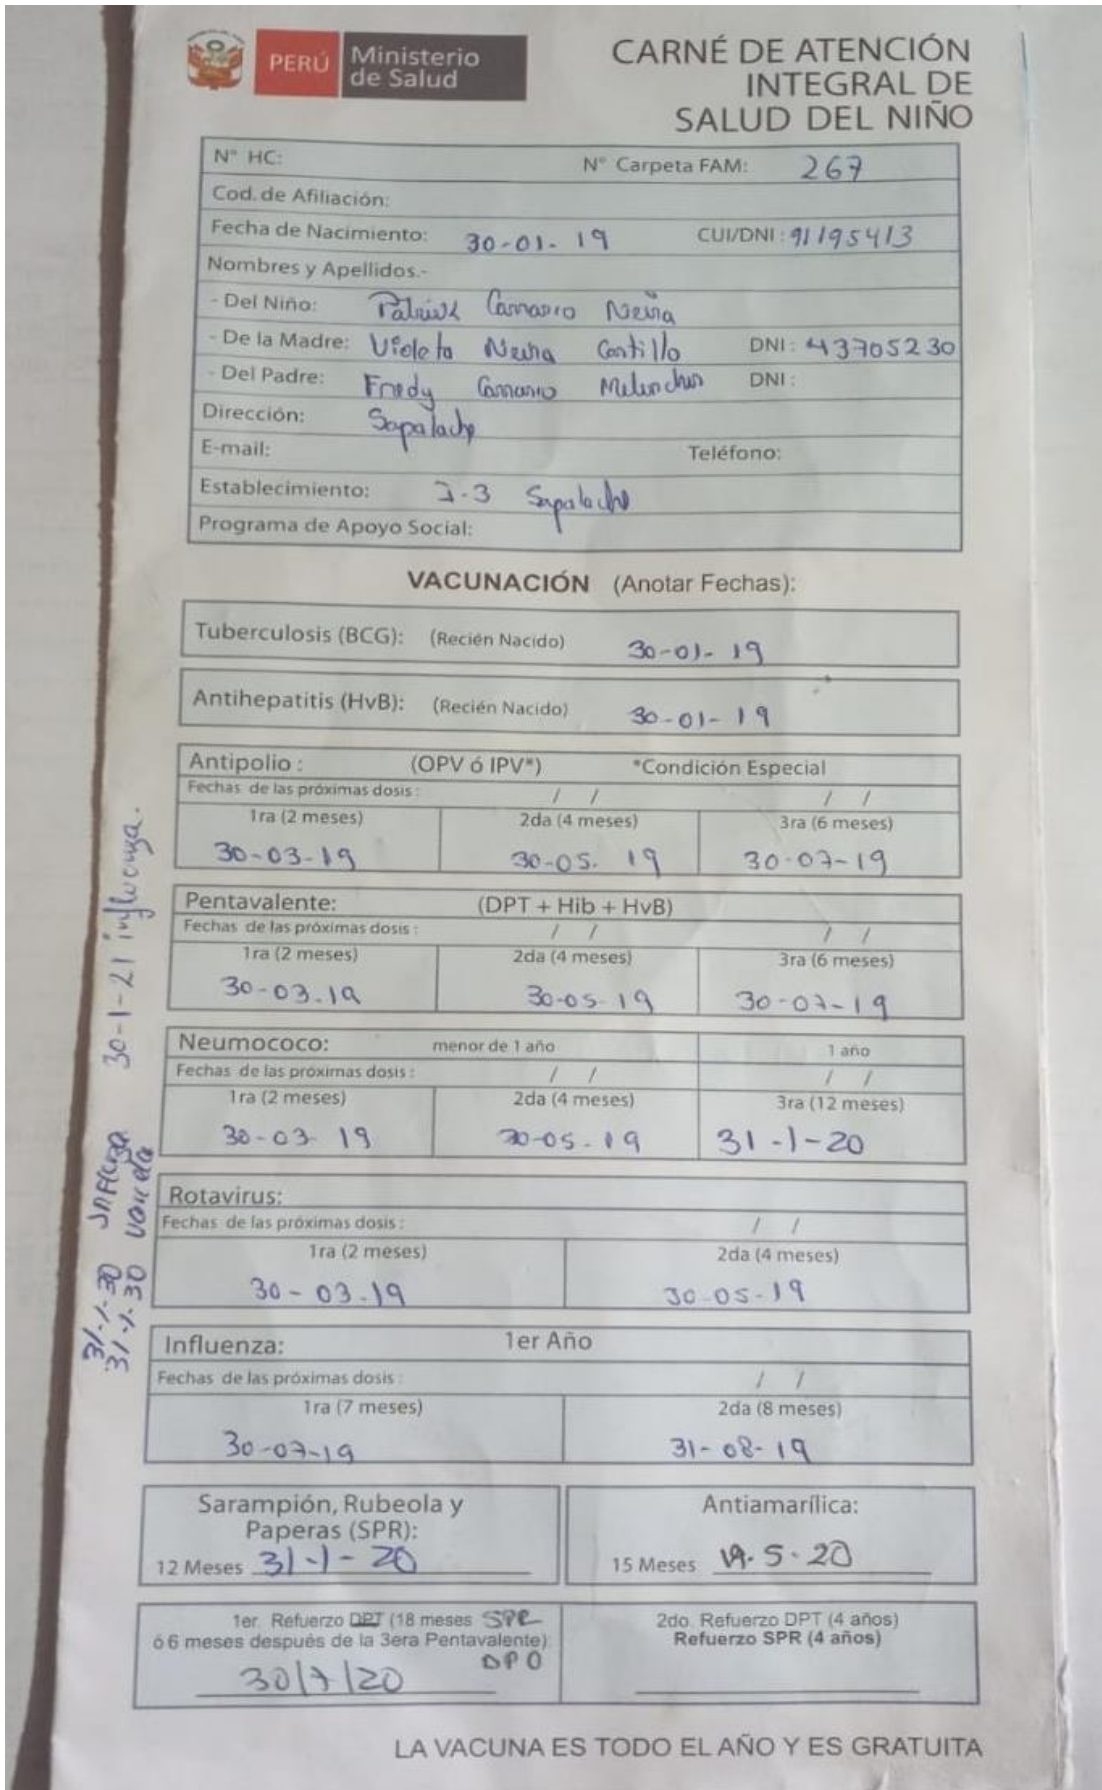 PERÚ Ministerio de Salud
CARNÉ DE ATENCIÓN
INTEGRAL DE
SALUD DEL NIÑO
N° HC: N° Carpeta FAM: 267
Cod. de Afiliación:
Fecha de Nacimiento: 30-01-19 CUI/DNI: 91195413
Nombres y Apellidos.-
- Del Niño: Neira
- De la Madre: Violeta Neira Castillo DNI: 43705230
- Del Padre: Fredy DNI:
Dirección: Sapalache
E-mail: Teléfono:
Establecimiento: I-3 Sapalache
Programa de Apoyo Social:
VACUNACIÓN (Anotar Fechas):
Tuberculosis (BCG): (Recién Nacido) 30-01-19
Antihepatitis (HvB): (Recién Nacido) 30-01-19
Antipolio : (OPV ó IPV*) *Condición Especial
Fechas de las próximas dosis : / / / /
1ra (2 meses) 2da (4 meses) 3ra (6 meses)
30-03-19 30-05-19 30-07-19
Pentavalente: (DPT + Hib + HvB)
Fechas de las próximas dosis : / / / /
1ra (2 meses) 2da (4 meses) 3ra (6 meses)
30-03-19 30-05-19 30-07-19
Neumococo: menor de 1 año 1 año
Fechas de las próximas dosis : / / / /
1ra (2 meses) 2da (4 meses) 3ra (12 meses)
30-03-19 30-05-19 31-1-20
Rotavirus:
Fechas de las próximas dosis : / /
1ra (2 meses) 2da (4 meses)
30-03-19 30-05-19
Influenza: 1er Año
Fechas de las próximas dosis : / /
1ra (7 meses) 2da (8 meses)
30-07-19 31-08-19
Sarampión, Rubeola y
Paperas (SPR):
12 Meses 31-1-20
Antiamarílica:
15 Meses 19-5-20
1er. Refuerzo DPT (18 meses SPR
ó 6 meses después de la 3era Pentavalente) DPO
30/7/20
2do. Refuerzo DPT (4 años)
Refuerzo SPR (4 años)
LA VACUNA ES TODO EL AÑO Y ES GRATUITA
30-1-21 influenza.